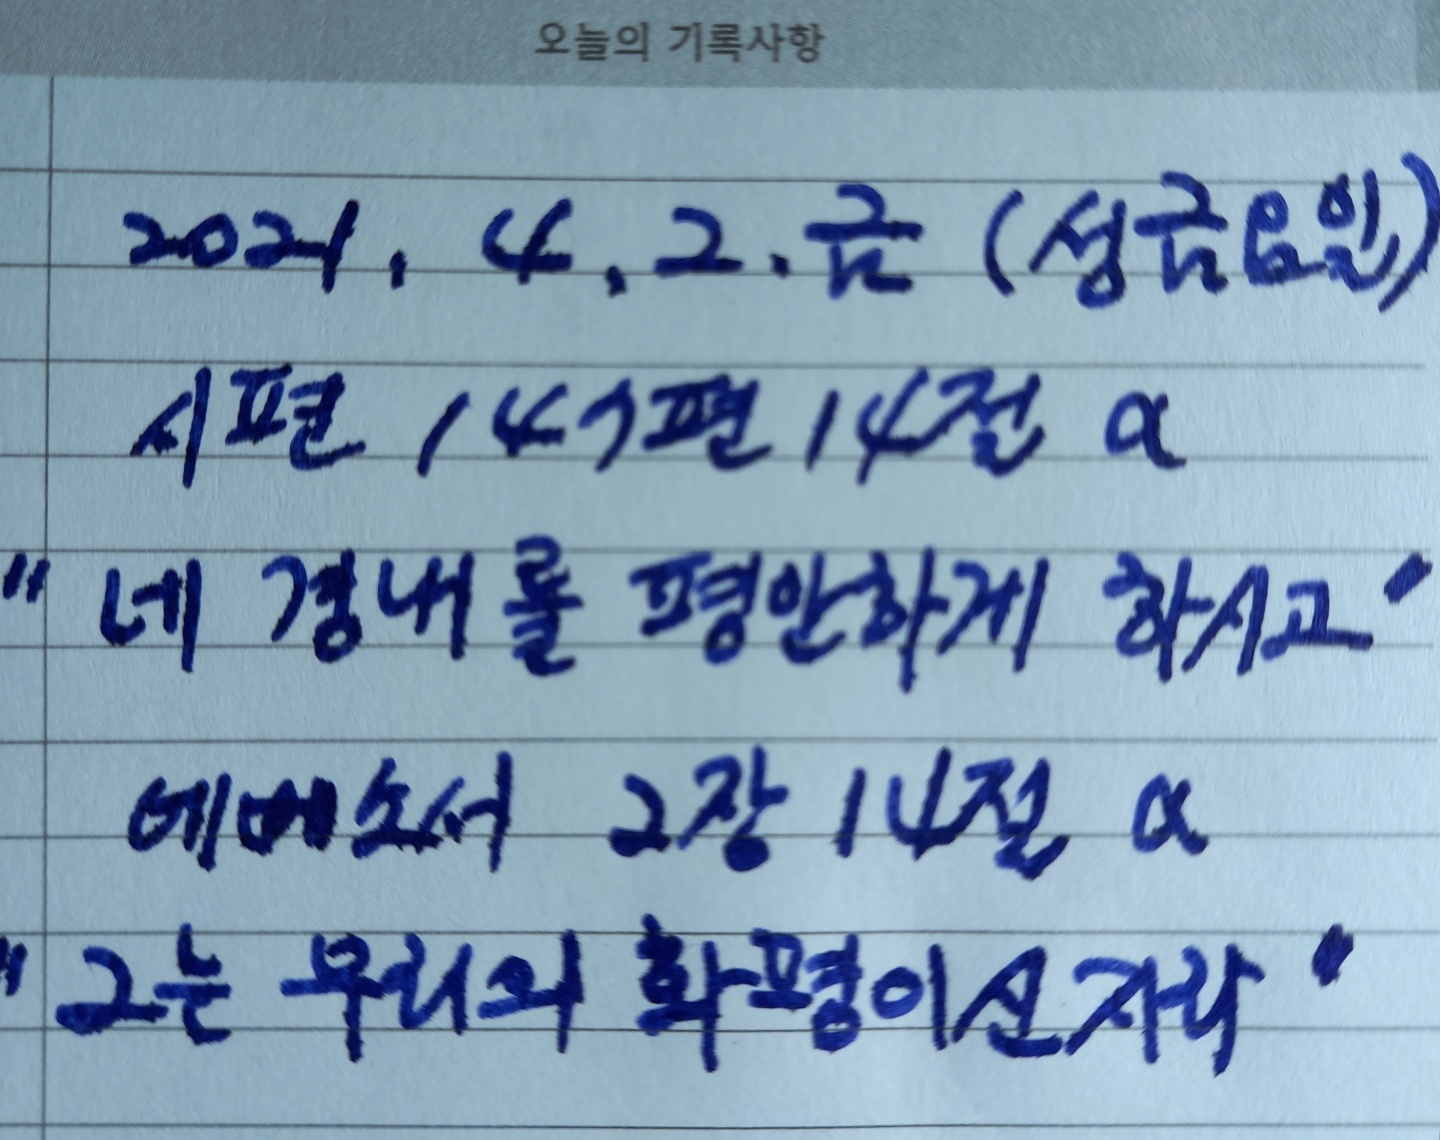 오늘의 기록사항
2021. 4. 2. 금 (성금요일)
시편 147편 14절 α
" 네 경내를 평안하게 하시고 "
에베소서 2장 14절 α
" 그는 우리의 화평이신지라 "